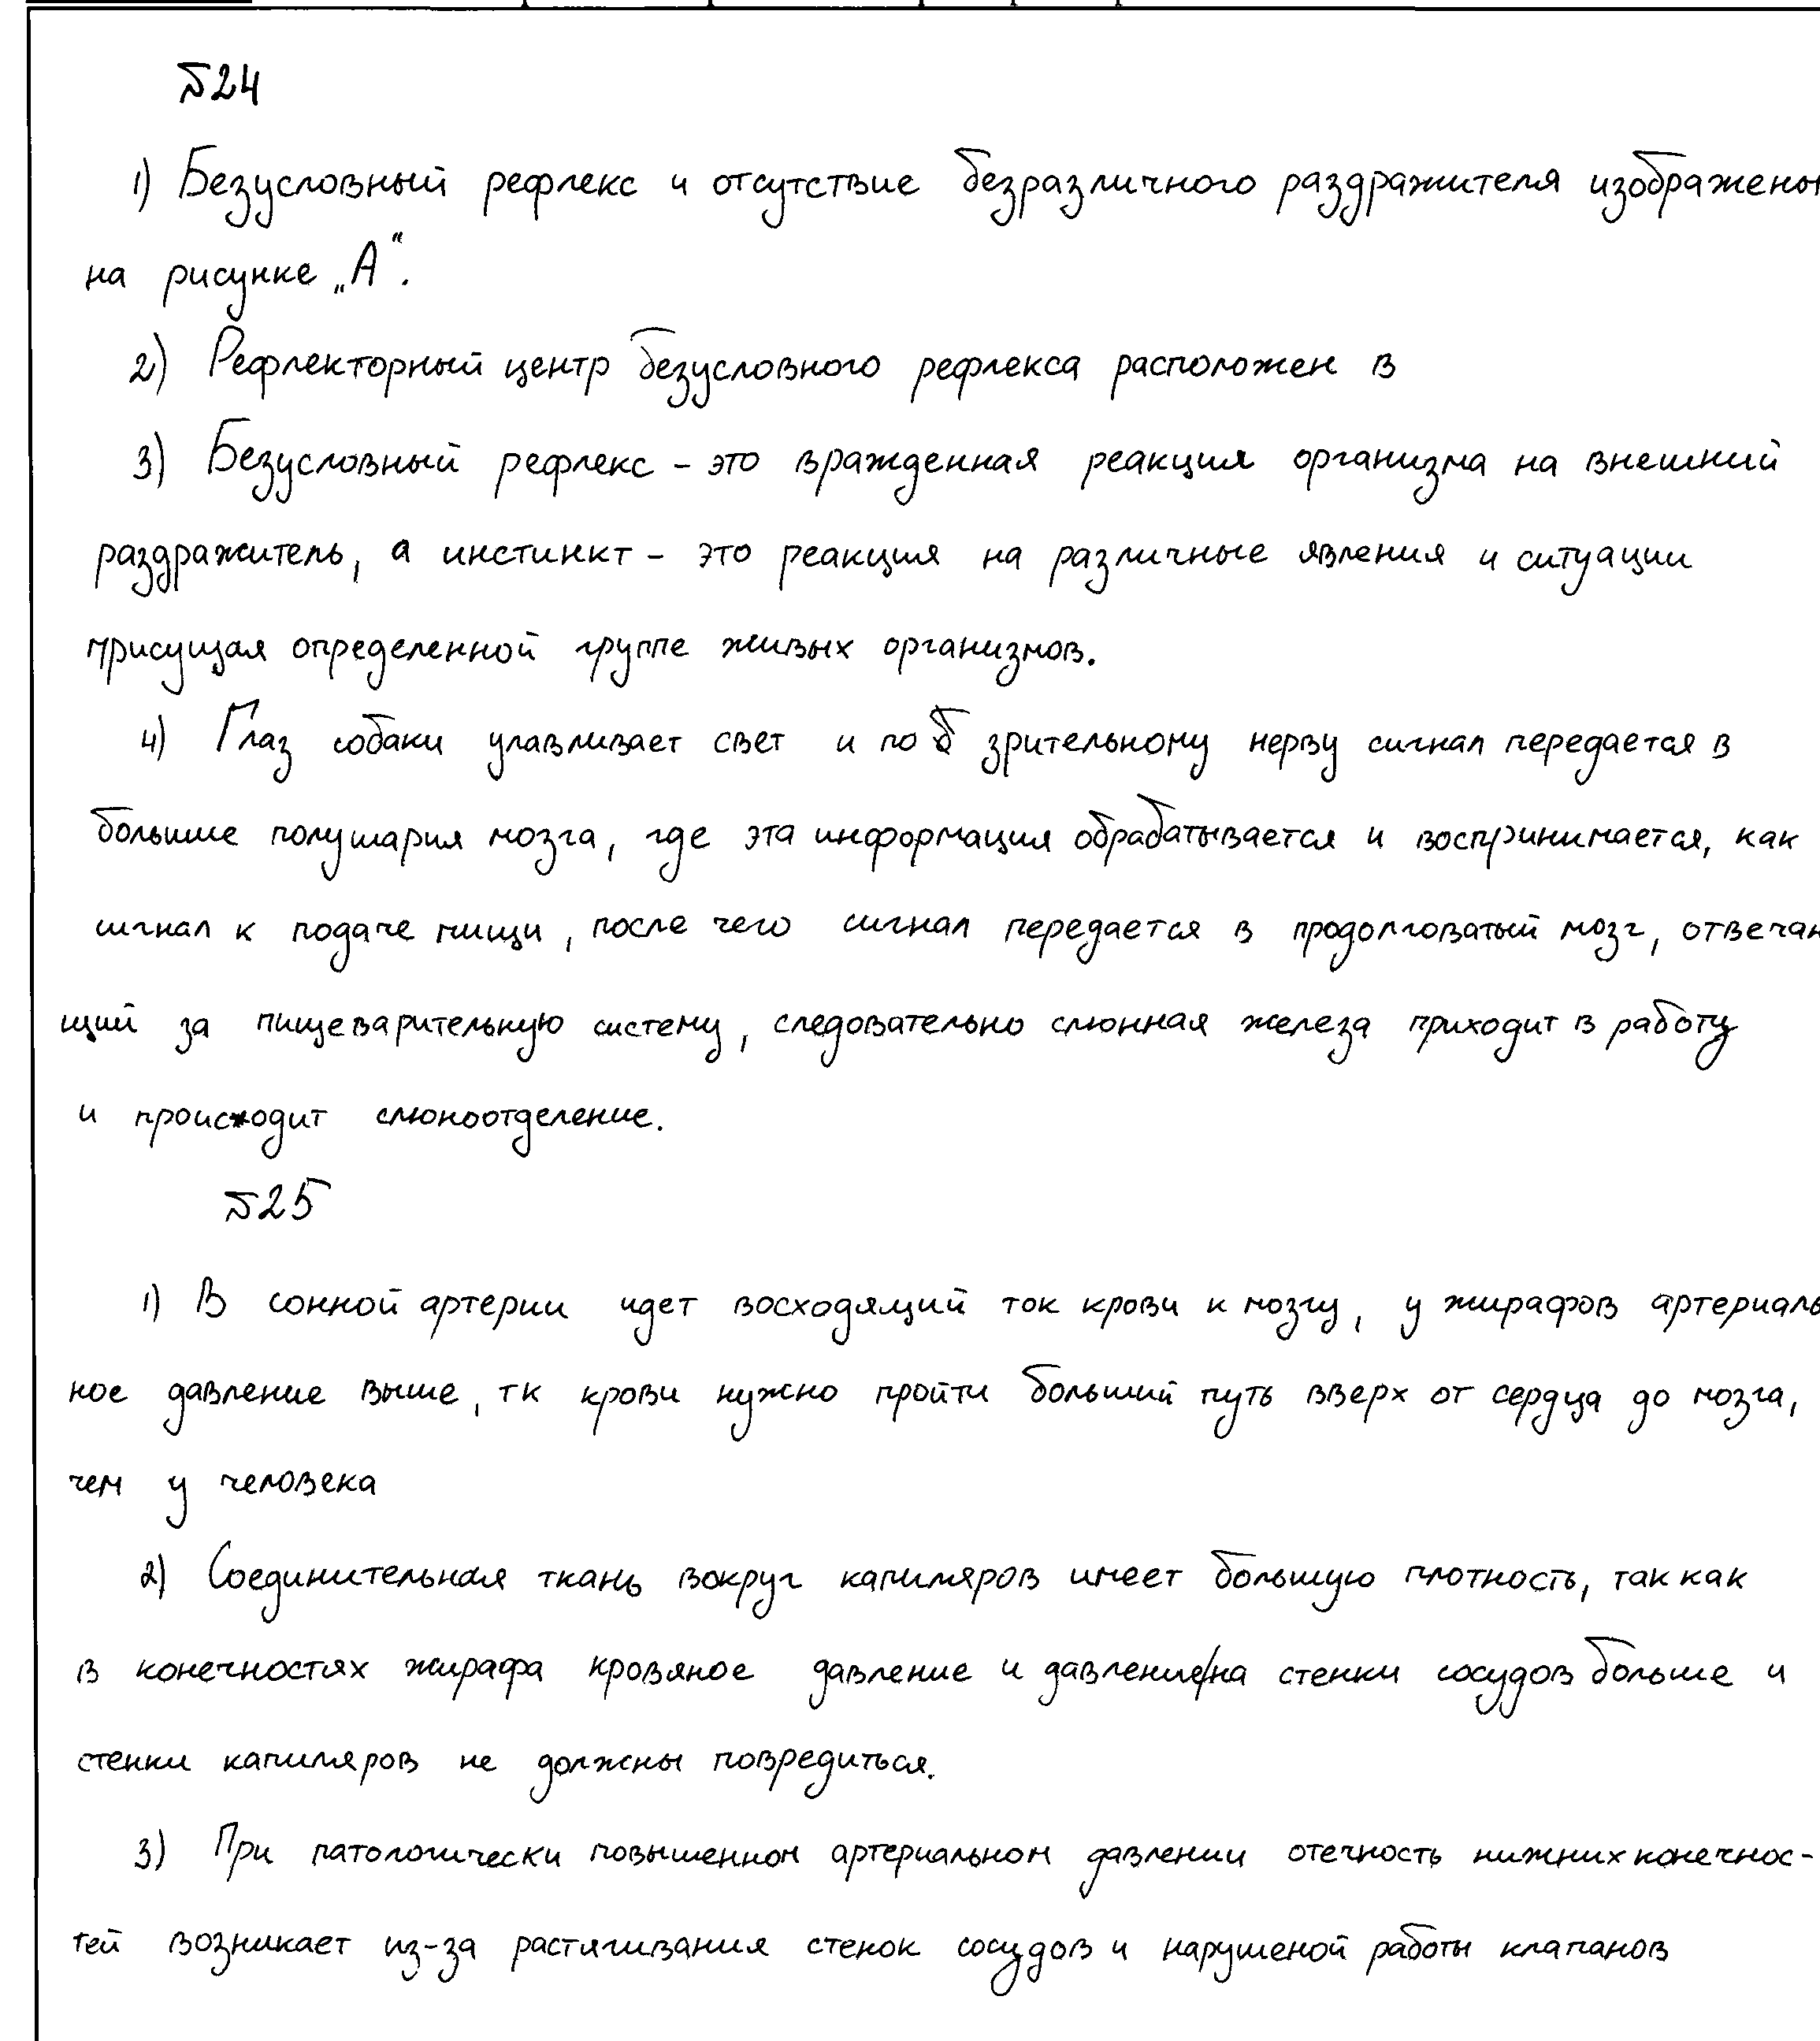 №24
1) Безусловный рефлекс и отсутствие безразличного раздражителя изображены
на рисунке „А“.
2) Рефлекторный центр безусловного рефлекса расположен в
3) Безусловный рефлекс - это вражденная реакция организма на внешний
раздражитель, а инстинкт - это реакция на различные явления и ситуации
присущая определенной группе живых организмов.
4) Глаз собаки улавливает свет и по зрительному нерву сигнал передается в
большие полушария мозга, где эта информация обрабатывается и воспринимается, как
сигнал к подаче пищи, после чего сигнал передается в продолговатый мозг, отвечаю
щий за пищеварительную систему, следовательно слюнная железа приходит в работу
и происходит слюноотделение.
№25
1) В сонной артерии идет восходящий ток крови к мозгу, у жирафов артериаль
ное давление выше, тк крови нужно пройти больший путь вверх от сердца до мозга,
чем у человека
2) Соединительная ткань вокруг капиляров имеет большую плотность, так как
в конечностях жирафа кровяное давление и давление на стенки сосудов больше и
стенки капиляров не должны повредиться.
3) При патологически повышенном артериальном давлении отечность нижних конечнос-
тей возникает из-за растягивания стенок сосудов и нарушеной работы клапанов